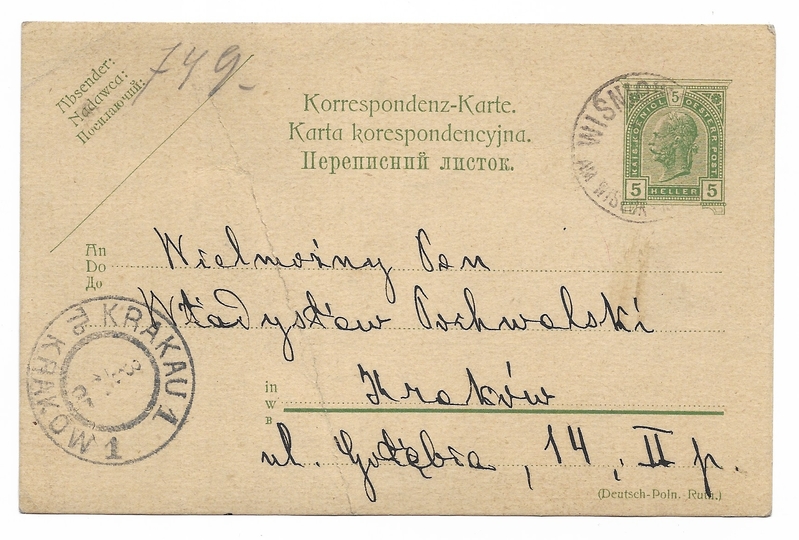 Absender:
Nadawca:
Посилаючий:
749.
Korrespondenz-Karte.
Karta korespondencyjna.
Переписний листок.
WIŚNIO
AM WISLOK
KAIS. KOENIGL. 5 OESTERR. POST
5 HELLER 5
An
Do
До
Wielmożny Pan
Władysław Pochwalski
in
w
в
Kraków
ul. Gołębia, 14, II p.
KRAKAU 1
KRAKÓW 1
(Deutsch-Poln. Ruth.)